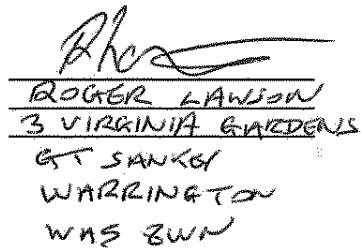 ROGER LAWSON
3 VIRGINIA GARDENS
GT SANKEY
WARRINGTON
WA5 8WN